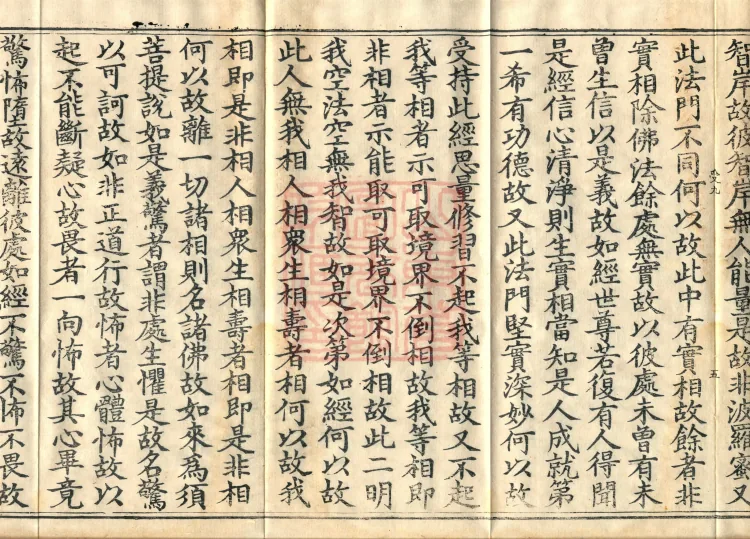 智岸故彼智岸無人能量是故非波羅蜜又
此法門不同何以故此中有實相故餘者非
實相除佛法餘處無實故以彼處未曾有未
曾生信以是義故如經世尊若復有人得聞
是經信心清淨則生實相當知是人成就第
一希有功德故又此法門堅實深妙何以故
受持此經思量修習不起我等相故又不起
我等相者示可取境界不倒相故我等相即
非相者示能取可取境界不倒相故此二明
我空法空無我智故如是次第如經何以故
此人無我相人相眾生相壽者相何以故我
相即是非相人相眾生相壽者相即是非相
何以故離一切諸相則名諸佛故如來為須
菩提說如是義驚者謂非處生懼是故名驚
以可訶故如非正道行故怖者心體怖故以
起不能斷疑心故畏者一向怖故其心畢竟
驚怖墮故遠離彼處如經不驚不怖不畏故
五